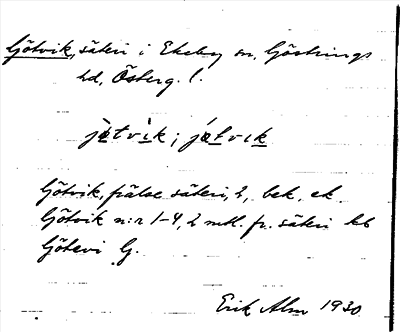 Götvik, säteri i Ekeby sn, Göstrings
hd, Österg. l.
jøtvik; jøtvik
Götvik, frälse säteri, 2, bek. ek.
Götvik n:r 1-4, 2 mtl. fr. säteri kb
Götevi G.
Erik Alm 1930